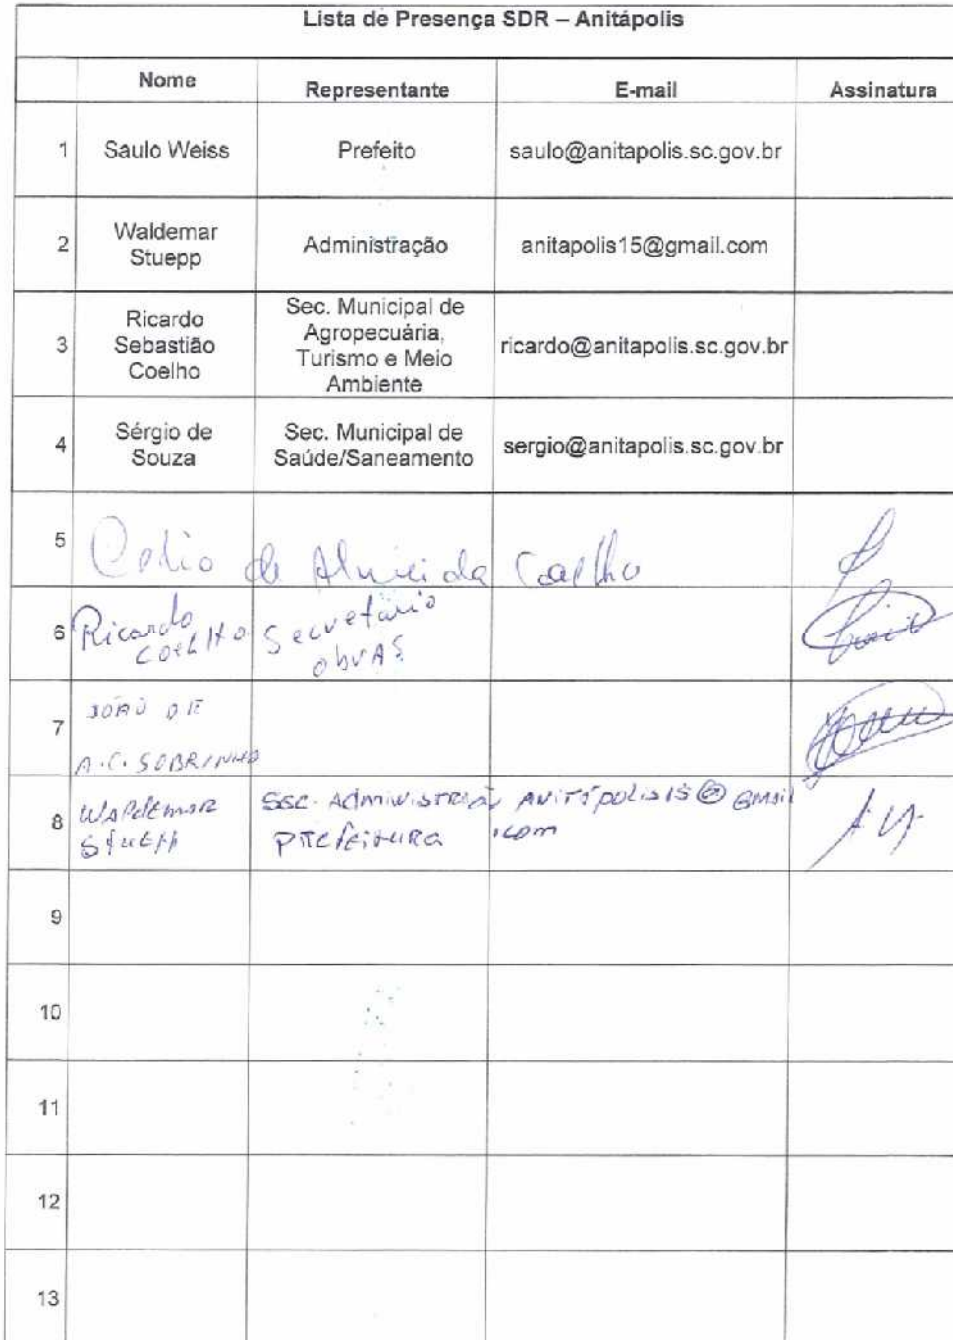 Lista de Presença SDR – Anitápolis
Nome Representante E-mail Assinatura
1 Saulo Weiss Prefeito saulo@anitapolis.sc.gov.br
2 Waldemar Stuepp Administração anitapolis15@gmail.com
3 Ricardo Sebastião Coelho Sec. Municipal de Agropecuária, Turismo e Meio Ambiente ricardo@anitapolis.sc.gov.br
4 Sérgio de Souza Sec. Municipal de Saúde/Saneamento sergio@anitapolis.sc.gov.br
5 Celio de Almeida Coelho
6 Ricardo Coelho Secretário obras
7 JOÃO DE A.C. SOBRINHO
8 Waldemar Stuepp Sec. Administração Prefeitura Anitápolis15@gmail.com
9
10
11
12
13